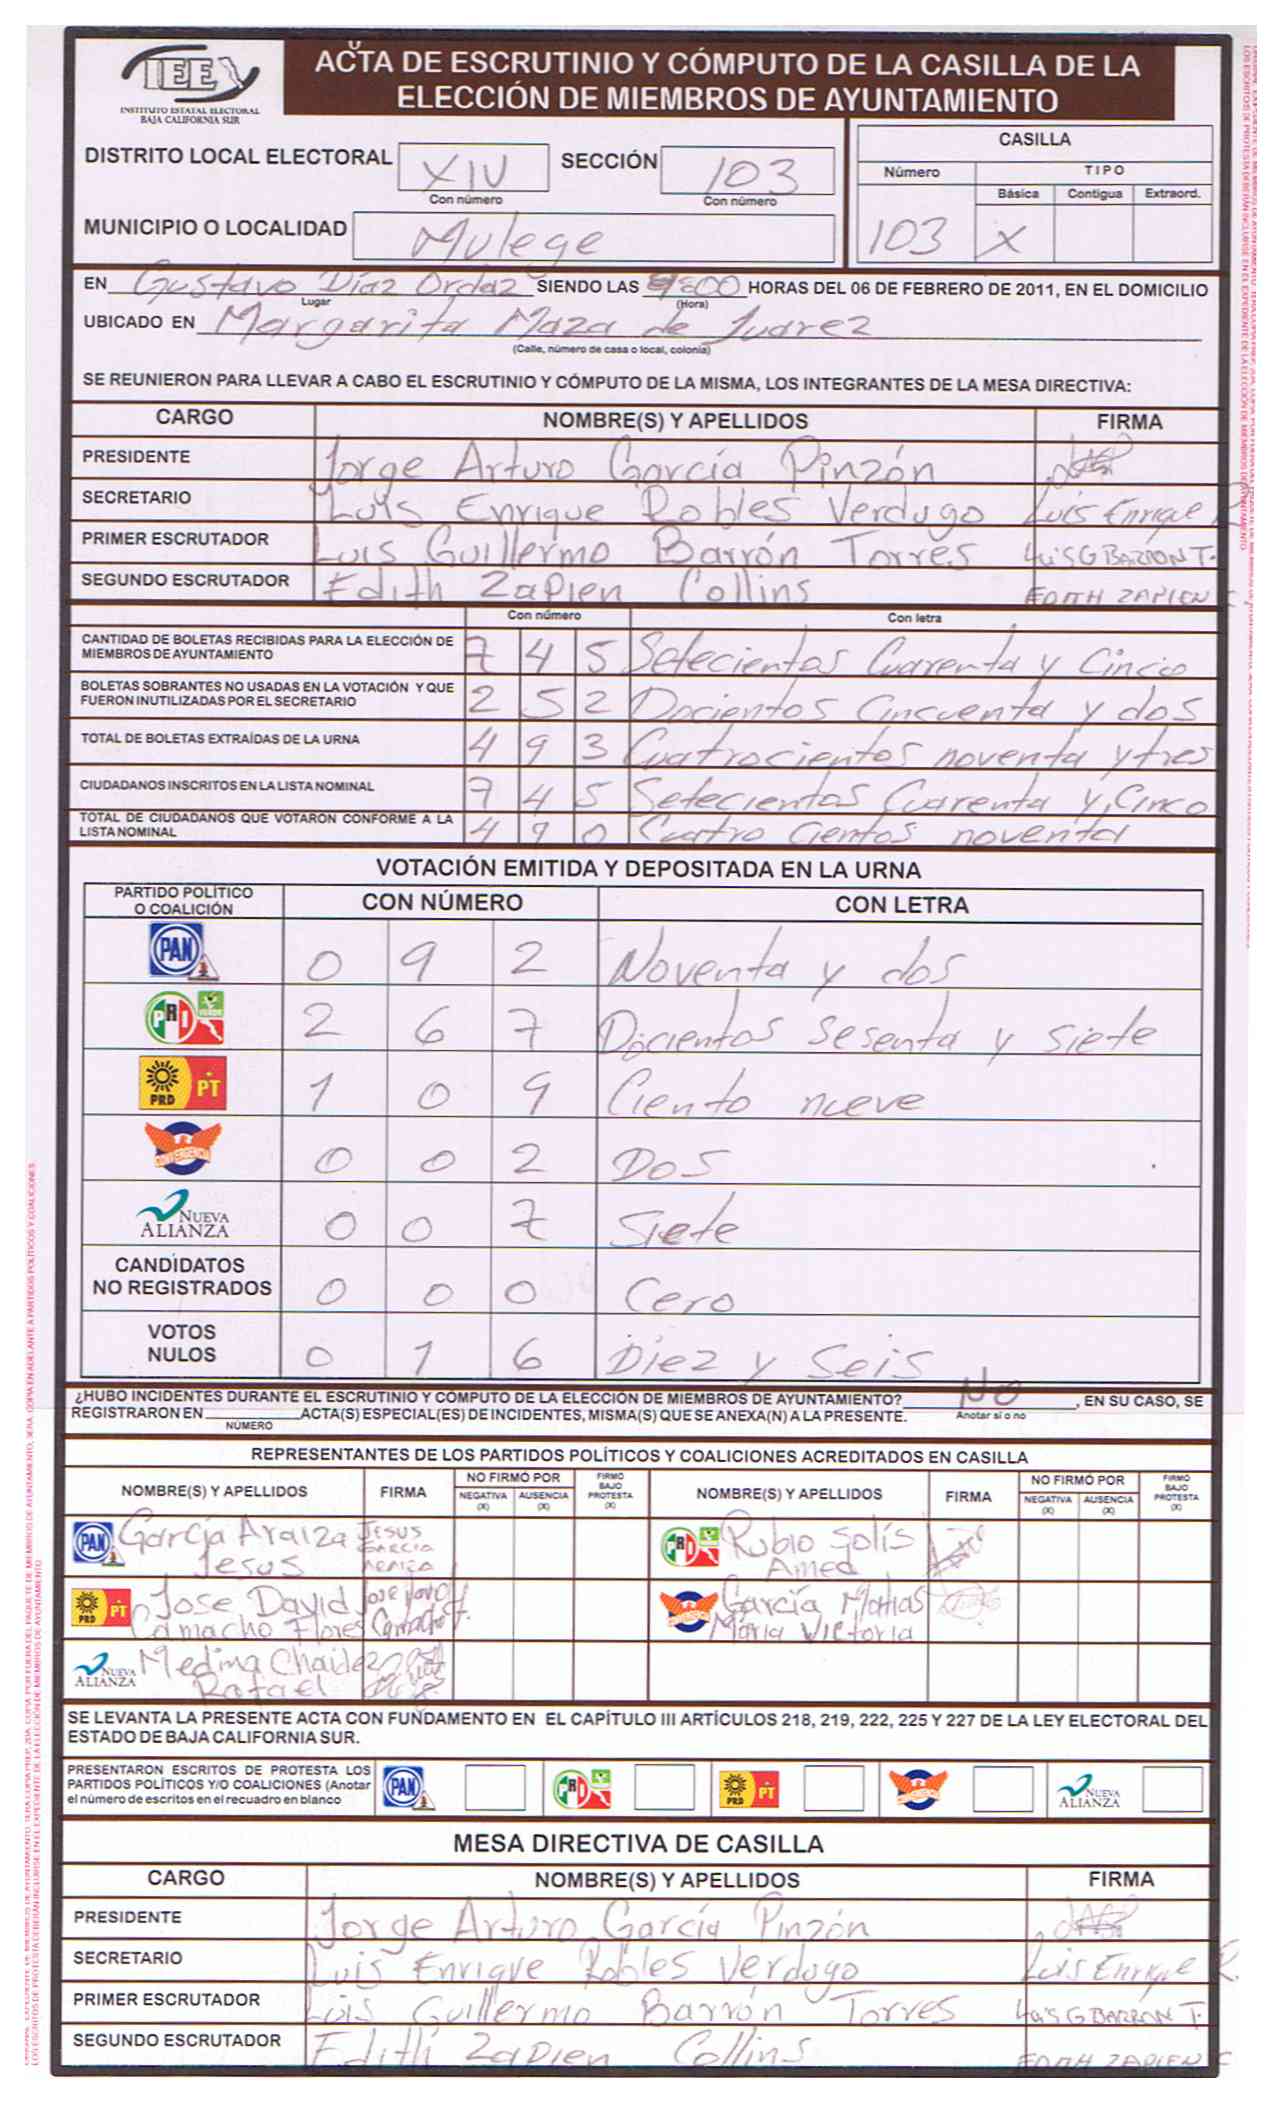 IEE
INSTITUTO ESTATAL ELECTORAL
BAJA CALIFORNIA SUR
ACTA DE ESCRUTINIO Y CÓMPUTO DE LA CASILLA DE LA
ELECCIÓN DE MIEMBROS DE AYUNTAMIENTO
DISTRITO LOCAL ELECTORAL XIV SECCIÓN 103
Con número Con número
MUNICIPIO O LOCALIDAD Mulege
CASILLA
Número TIPO
Básica Contigua Extraord.
103 X
EN Gustavo Díaz Ordaz SIENDO LAS HORAS DEL 06 DE FEBRERO DE 2011, EN EL DOMICILIO
Lugar (Hora)
UBICADO EN Margarita Maza de Juarez
(Calle, número de casa o local, colonia)
SE REUNIERON PARA LLEVAR A CABO EL ESCRUTINIO Y CÓMPUTO DE LA MISMA, LOS INTEGRANTES DE LA MESA DIRECTIVA:
CARGO NOMBRE(S) Y APELLIDOS FIRMA
PRESIDENTE Jorge Arturo García Pinzón
SECRETARIO Luis Enrique Robles Verdugo Luis Enrique R
PRIMER ESCRUTADOR Luis Guillermo Barrón Torres Luis G BARRON T.
SEGUNDO ESCRUTADOR Edith Zapien Collins EDITH ZAPIEN C
Con número Con letra
CANTIDAD DE BOLETAS RECIBIDAS PARA LA ELECCIÓN DE
MIEMBROS DE AYUNTAMIENTO 7 4 5 Setecientos Cuarenta y Cinco
BOLETAS SOBRANTES NO USADAS EN LA VOTACIÓN Y QUE
FUERON INUTILIZADAS POR EL SECRETARIO 2 5 2 Docientos Cincuenta y dos
TOTAL DE BOLETAS EXTRAÍDAS DE LA URNA 4 9 3 Cuatrocientos noventa y tres
CIUDADANOS INSCRITOS EN LA LISTA NOMINAL 7 4 5 Setecientos Cuarenta y Cinco
TOTAL DE CIUDADANOS QUE VOTARON CONFORME A LA
LISTA NOMINAL 4 9 0 Cuatro cientos noventa
VOTACIÓN EMITIDA Y DEPOSITADA EN LA URNA
PARTIDO POLÍTICO
O COALICIÓN CON NÚMERO CON LETRA
PAN 0 9 2 Noventa y dos
PRI VERDE 2 6 7 Docientos sesenta y siete
PRD PT 1 0 9 Ciento nueve
CONVERGENCIA 0 0 2 Dos
NUEVA ALIANZA 0 0 7 Siete
CANDIDATOS
NO REGISTRADOS 0 0 0 Cero
VOTOS
NULOS 0 1 6 Diez y Seis
¿HUBO INCIDENTES DURANTE EL ESCRUTINIO Y CÓMPUTO DE LA ELECCIÓN DE MIEMBROS DE AYUNTAMIENTO? NO , EN SU CASO, SE
REGISTRARON EN ACTA(S) ESPECIAL(ES) DE INCIDENTES, MISMA(S) QUE SE ANEXA(N) A LA PRESENTE. Anotar sí o no
NÚMERO
REPRESENTANTES DE LOS PARTIDOS POLÍTICOS Y COALICIONES ACREDITADOS EN CASILLA
NOMBRE(S) Y APELLIDOS FIRMA NO FIRMÓ POR FIRMÓ BAJO PROTESTA (X) NOMBRE(S) Y APELLIDOS FIRMA NO FIRMÓ POR FIRMÓ BAJO PROTESTA (X)
NEGATIVA (X) AUSENCIA (X) NEGATIVA (X) AUSENCIA (X)
PAN García Araiza Jesus JESUS GARCIA PRI Rubio Solís Amed
PRD PT Jose David Camacho Flores Jose David Camacho F. CONVERGENCIA García Matias María Victoria
NUEVA ALIANZA Medina Chaidez Rafael
SE LEVANTA LA PRESENTE ACTA CON FUNDAMENTO EN EL CAPÍTULO III ARTÍCULOS 218, 219, 222, 225 Y 227 DE LA LEY ELECTORAL DEL
ESTADO DE BAJA CALIFORNIA SUR.
PRESENTARON ESCRITOS DE PROTESTA LOS
PARTIDOS POLÍTICOS Y/O COALICIONES (Anotar
el número de escritos en el recuadro en blanco
PAN PRI PRD PT CONVERGENCIA NUEVA ALIANZA
MESA DIRECTIVA DE CASILLA
CARGO NOMBRE(S) Y APELLIDOS FIRMA
PRESIDENTE Jorge Arturo García Pinzón
SECRETARIO Luis Enrique Robles Verdugo Luis Enrique R.
PRIMER ESCRUTADOR Luis Guillermo Barrón Torres Luis G BARRON T.
SEGUNDO ESCRUTADOR Edith Zapien Collins EDITH ZAPIEN C